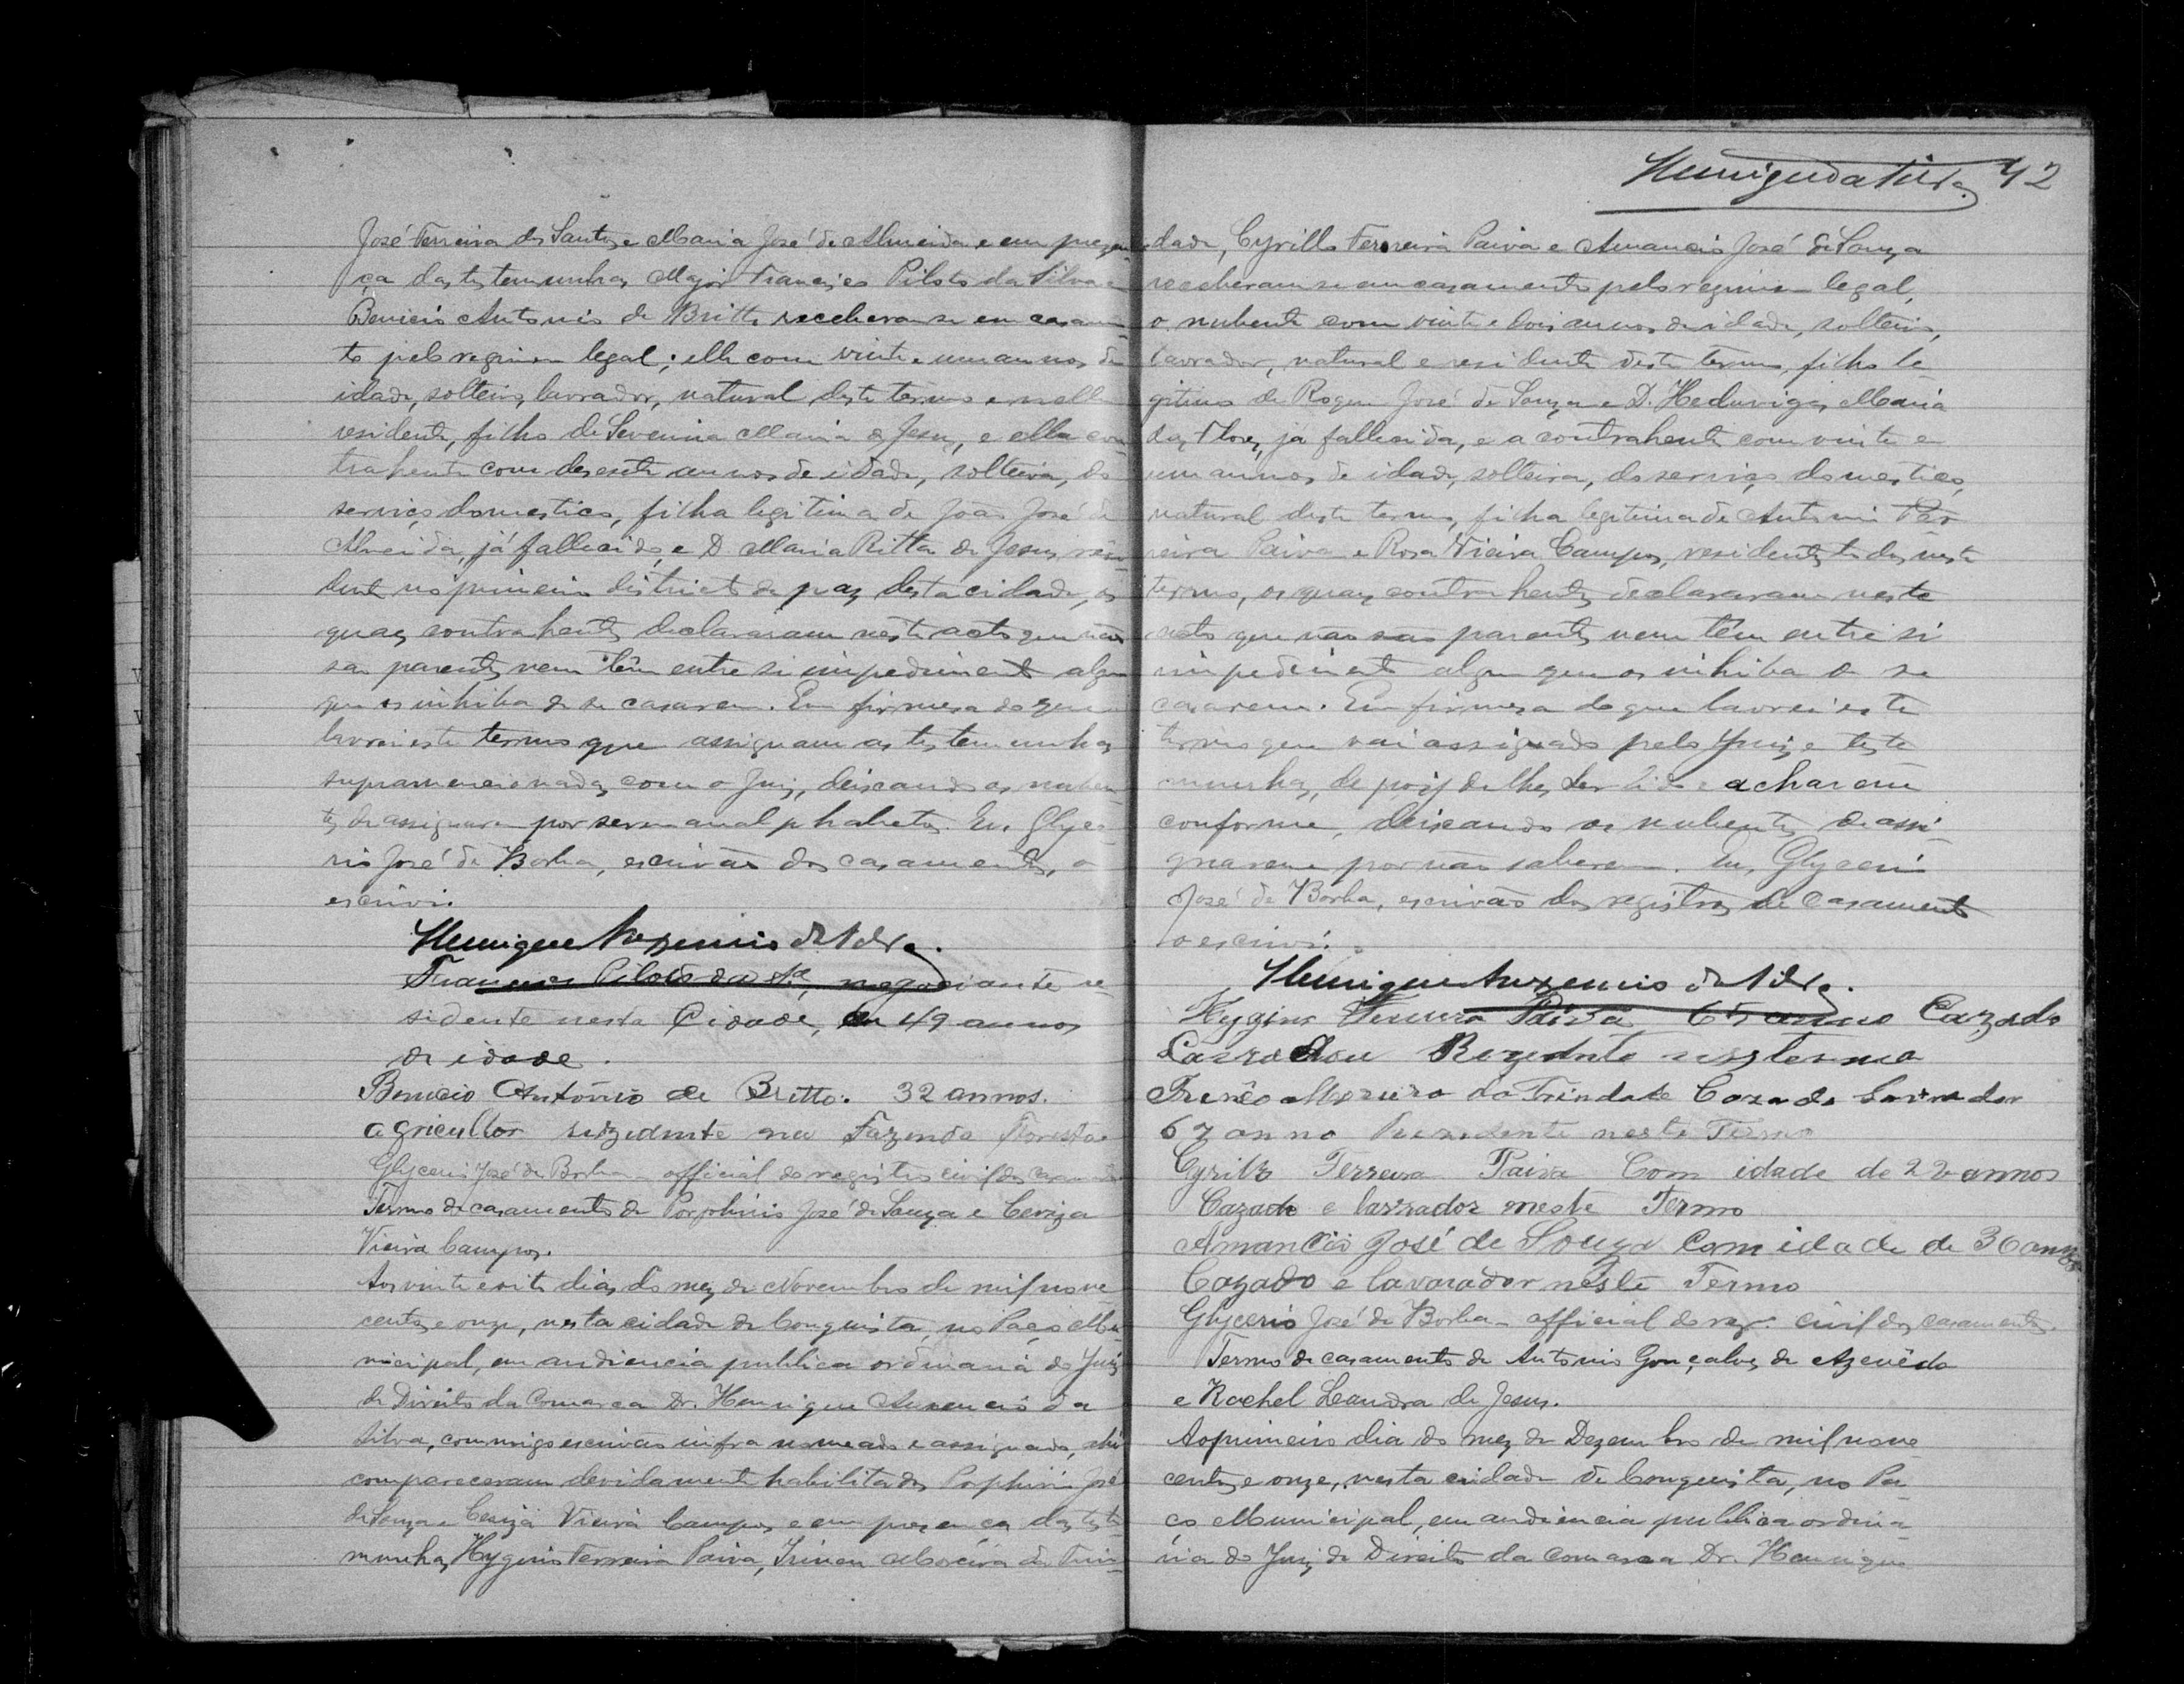 José Ferreira dos Santos e Maria José de Almeida e em prezen-
ça das testemunhas Major Francisco Piloto da Silva e
Benicio Antonio de Britto receberam-se em casamen-
to pelo regimen legal; elle com vinte e um annos de
idade, solteiro, lavrador, natural deste termo e nelle
residente, filho de Severina Maria de Jesus, e ella con-
trahente com desesete annos de idade, solteira, do
serviço domestico, filha legitima de João José de
Almeida, já fallecido, e D. Maria Ritta de Jesus, resi-
dente no primeiro districto de paz desta cidade, os
quaes contrahentes declararam neste acto que não
são parentes nem têm entre si impedimento algum
que os inhiba de se casarem. Em firmesa do que
lavrei este termo que assignam as testemunhas
supramencionadas com o Juiz, deixando os nuben-
tes de assignarem por serem analphabetos. Eu, Glyce-
rio José de Borba, escrivão dos casamentos, o
escrivi.
Henrique Auxencio da Silva.
Francisco Piloto da Sª, negociante re-
sidente nesta Cidade, 49 annos
de idade.
Benicio Antônio de Britto. 32 annos.
agricultor rezidente na Fazenda Floresta
Glycerio José de Borba official do registro civil dos casamentos
Termo de casamento de Porphirio José de Souza e Ceriza
Vieira Campos.
Aos vinte e oito dias do mez de Novembro de mil nove
centos e onze, nesta cidade de Conquista, no Paço Mu-
nicipal, em audiencia publica ordinaria do Juiz
de Direito da Comarca Dr. Henrique Auxencio da
Silva, commigo escrivão infra nomeado e assignado, ahi
compareceram devidamente habilitados Porphirio José
de Souza e Ceriza Vieira Campos e em presença das teste
munhas Hygino Ferreira Paiva, Irineu Moreira da Trin-
Henrique da Silva 42
dade, Cyrillo Ferreira Paiva e Amancio José de Souza
receberam-se em casamento pelo regimen legal,
o nubente com vinte e dois annos de idade, solteiro,
lavrador, natural e residente deste termo, filho le-
gitimo de Roque José de Souza e D. Heduviges Maria
das Flores, já fallecida, e a contrahente com vinte e
um annos de idade, solteira, do serviço domestico,
natural deste termo, filha legitima de Antonio Fer-
reira Paiva e Rosa Vieira Campos, residentes todos neste
termo, os quaes contrahentes declararam neste
acto que não são parentes nem têm entre si
impedimento algum que os inhiba de se
casarem. Em firmesa do que lavrei este
termo que vai assignado pelo Juiz e teste
munhas, depois de lhes ser lido e acharem
conforme, deixando os nubentes de assi-
gnarem por não saberem. Eu, Glycerio
José de Borba, escrivão dos registros de casamento
o escrivi.
Henrique Auxencio da Silva.
Hygino Ferreira Paiva, 65 annos Cazado
Lavrador Rezidente neste termo
Irenêo Moreira da Trindade Cazado Lavrador
67 anno Rezidente neste Termo
Cyrillo Ferreira Paiva Com idade de 22 annos
Cazado e lavrador neste Termo
Amancio José de Souza Com idade de 36 annos
Cazado e lavarador neste Termo
Glycerio José de Borba official do reg. civil dos casamentos.
Termo de casamento de Antonio Gonçalves de Azevêdo
e Rachel Leandra de Jesus.
Ao primeiro dia do mez de Dezembro de mil nove
centos e onze, nesta cidade de Conquista, no Pa-
ço Municipal, em audiencia publica ordina-
ria do Juiz de Direito da Comarca Dr. Henrique